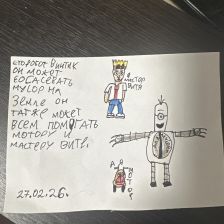 это робот винтик
он может
всасасевать
мусор на
земле он
также может
всем помогать
мотору и
мастеру вите.
мастор
витя
мотор
27.02.26.